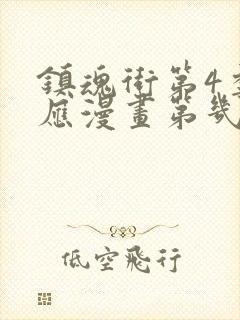 鎮魂街第4季
應漫畫第幾
低空飛行